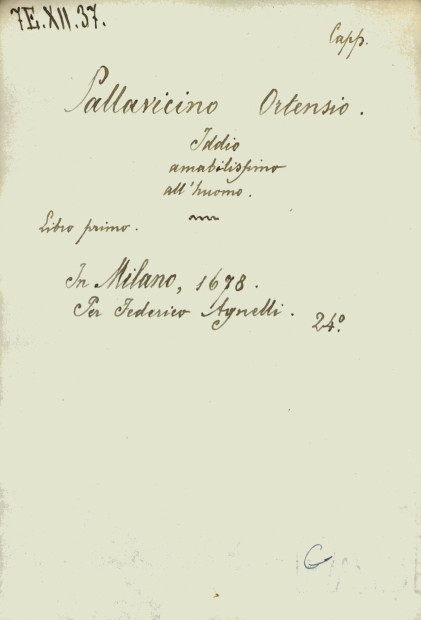 7E.XII.37.
Capp.
Pallavicino Ortensio.
Iddio
amabilissimo
all'huomo.
Libro primo.
In Milano, 1678.
Per Federico Agnelli. 24°.
C